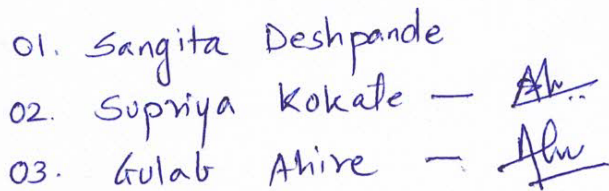 01. Sangita Deshpande
02. Supriya Kokate —
03. Gulab Ahire —